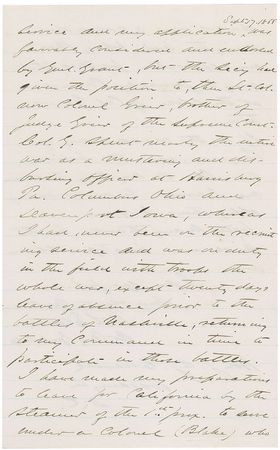 Sept 27, 1866
service and my application was
favorably considered and endorsed
by Genl. Grant, but the Secy had
given the position to, then Lt-Col.
now Colonel Grier, brother of
Judge Grier of the Supreme Court.
Col. G. spent nearly the entire
war as a mustering and dis-
bursing officer at Harrisburg
Pa. Columbus Ohio and
Davenport Iowa, whereas
I had never been on the recruit
ing service and was on duty
in the field with troops the
whole war, except twenty days
leave of absence prior to the
battles of Nashville, returning
to my Command in time to
participate in those battles.
I have made my preparations
to leave for California by the
steamer of the 1st prox. to serve
under a Colonel (Blake) who